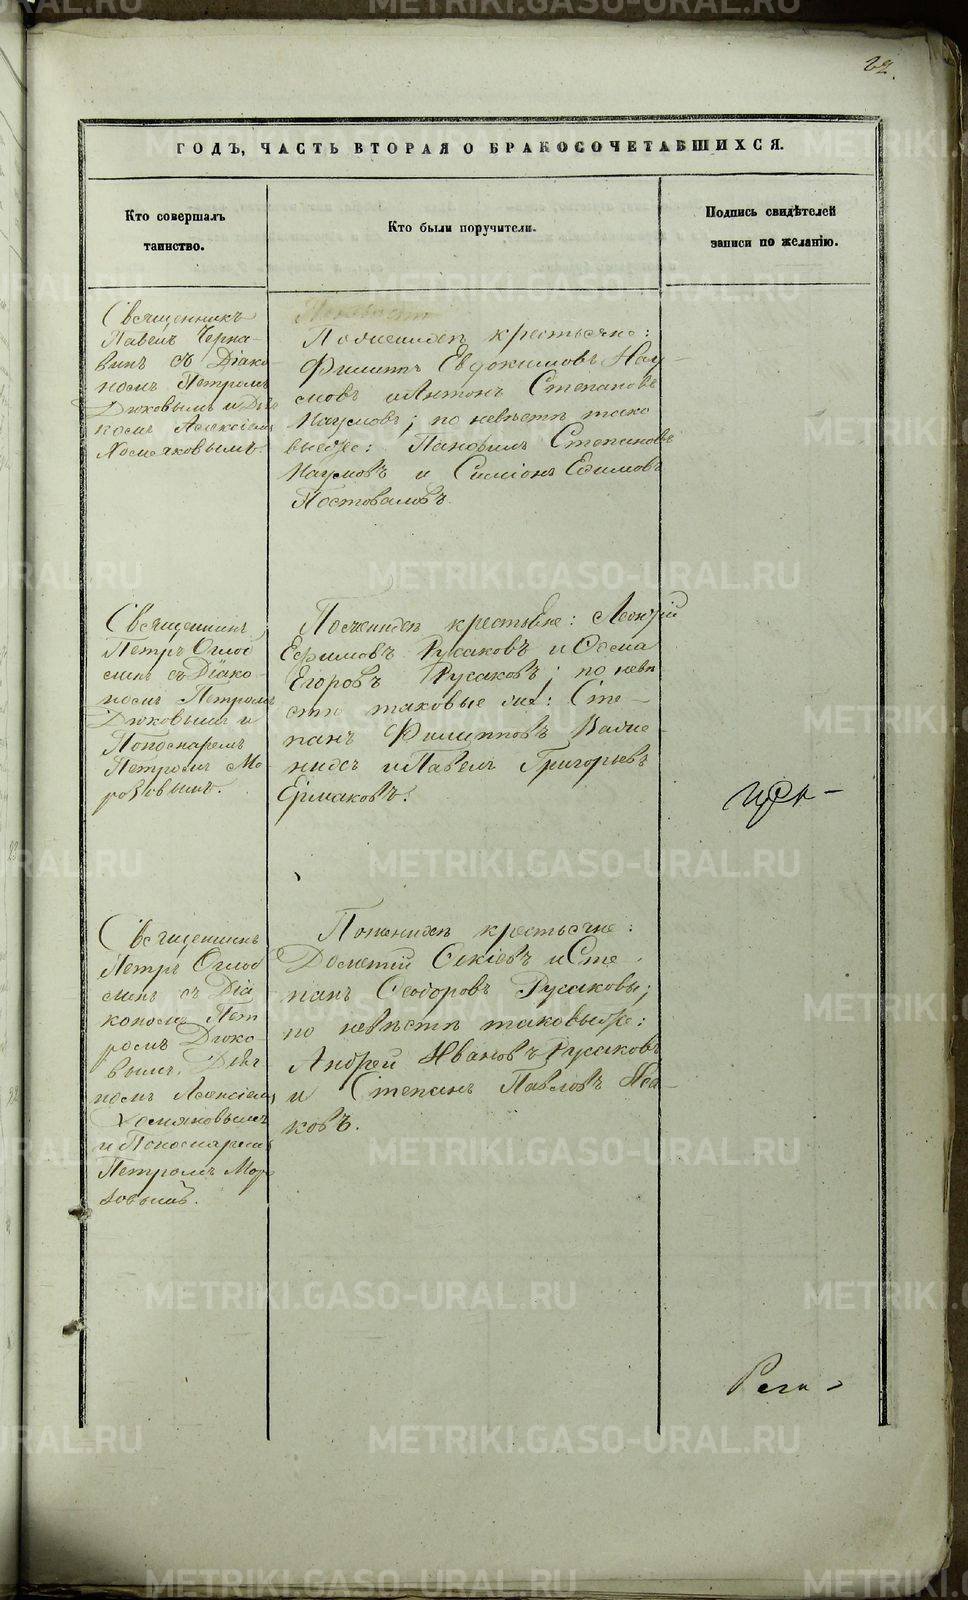 62.
ГОДЪ, ЧАСТЬ ВТОРАЯ О БРАКОСОЧЕТАВШИХСЯ.
Кто совершалъ
таинство.
Кто были поручители.
Подпись свидѣтелей
записи по желанію.
Священникъ
Павелъ Черна-
винъ съ Діако-
номъ Петромъ
Дюковымъ и Дья-
комъ Алексіемъ
Хомяковымъ.
По женихѣ крестьяне:
Филиппъ Евдокимовъ Нау-
мовъ и Антонъ Степановъ
Наумовъ; по невѣстѣ тако
выеже: Панфилъ Степановъ
Наумовъ и Симіонъ Ефимовъ
Постоваловъ.
Священникъ
Петръ Оглоб
линъ съ Діако-
номъ Петромъ
Дюковымъ и
Пономаремъ
Петромъ Мо-
розовымъ.
По женихѣ крестьяне: Леонтій
Ефимовъ Русаковъ и Ѳома
Егоровъ Русаковъ; по невѣ
стѣ таковые же: Сте-
панъ Филипповъ
и Павелъ Григорьевъ
Ермаковъ.
Священникъ
Петръ Оглоб
линъ съ Діа
кономъ Пет
ромъ Дюко-
вымъ,
Алексіемъ
Хомяковымъ
и Пономаремъ
Петромъ Моро
зовымъ.
По женихѣ крестьяне:
и Сте-
панъ Ѳеодоровъ Русаковы;
по невѣстѣ таковыеже:
Андрей Ивановъ Русаковъ
и Степанъ Павловъ Иса-
ковъ.
METRIKI.GASO-URAL.RU